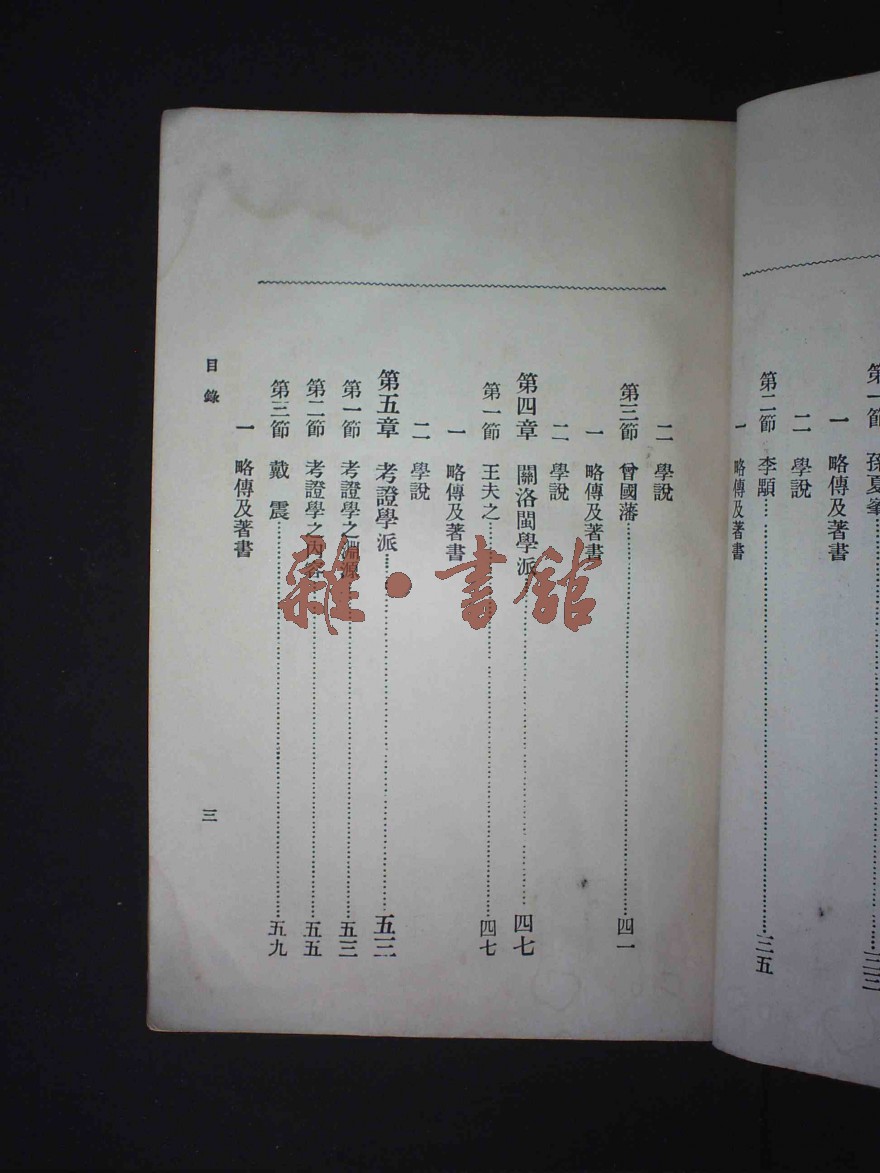 第一節 孫夏峯……三三
一 略傳及著書
二 學說
第二節 李顒……三五
一 略傳及著書
二 學說
第三節 曾國藩……四一
一 略傳及著書
二 學說
第四章 關洛閩學派……四七
第一節 王夫之……四七
一 略傳及著書
二 學說
第五章 考證學派……五三
第一節 考證學之淵源……五三
第二節 考證學之內容……五五
第三節 戴震……五九
一 略傳及著書
目錄
三
雜·書館